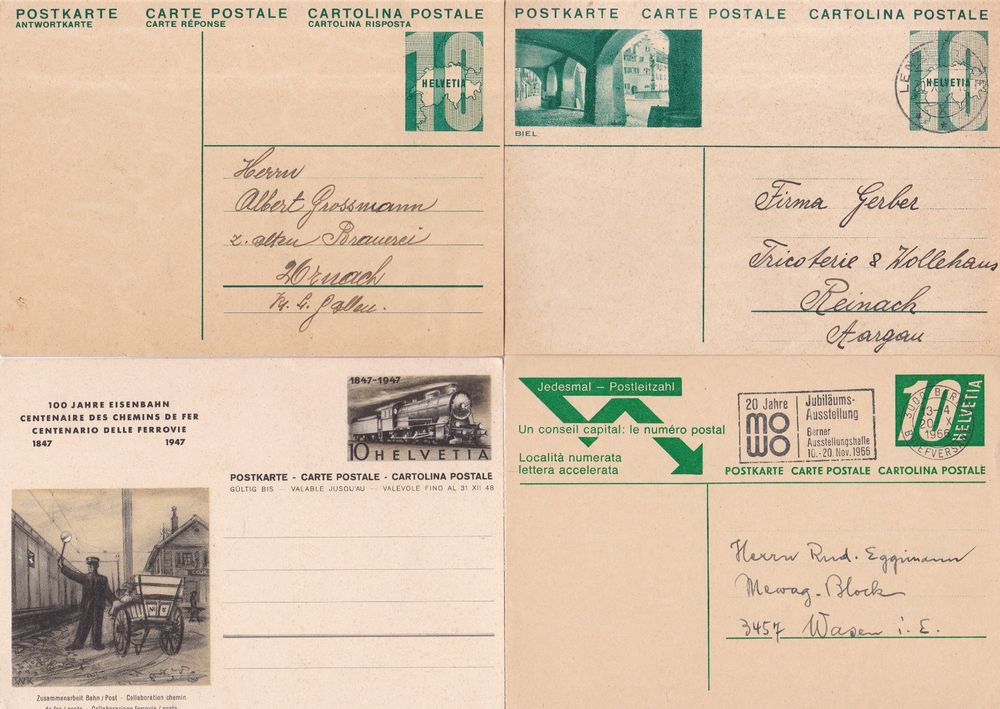 POSTKARTE CARTE POSTALE CARTOLINA POSTALE
ANTWORTKARTE CARTE RÉPONSE CARTOLINA RISPOSTA
10
HELVETIA
Herrn
Albert Grossmann
z. alten Brauerei
Urnach
Kt. St. Gallen.
POSTKARTE CARTE POSTALE CARTOLINA POSTALE
BIEL
10
HELVETIA
Firma Gerber
Tricoterie & Wollehaus
Reinach
Aargau
100 JAHRE EISENBAHN
CENTENAIRE DES CHEMINS DE FER
CENTENARIO DELLE FERROVIE
1847 1947
1847-1947
10 HELVETIA
POSTKARTE - CARTE POSTALE - CARTOLINA POSTALE
GÜLTIG BIS — VALABLE JUSQU'AU — VALEVOLE FINO AL 31 XII 48
WK
Zusammenarbeit Bahn / Post - Collaboration chemin
de fer / poste - Collaborazione ferrovia / posta
Jedesmal – Postleitzahl
Un conseil capital: le numéro postal
Località numerata
lettera accelerata
20 Jahre
MOWO
Jubiläums-
Ausstellung
Berner
Ausstellungshalle
10.-20. Nov. 1966
10
HELVETIA
3000 BERN
13-4
20 X
1966
BRIEFVERSAND
POSTKARTE CARTE POSTALE CARTOLINA POSTALE
Herrn Rud. Eggimann
Mewag-Block
3457 Wasen i. E.